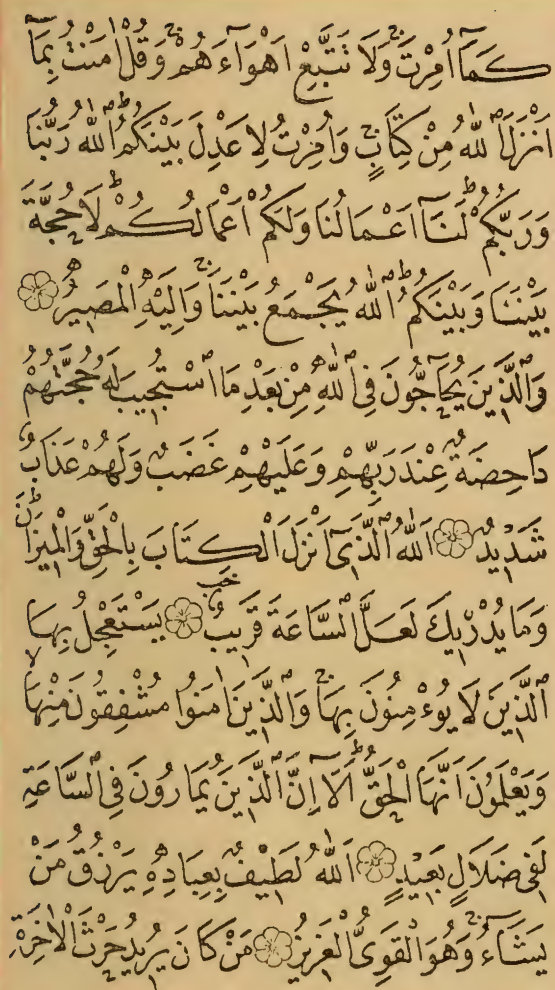 كَمَآ اُمِرْتَ ۚ وَلَا تَتَّبِعْ اَهْوَآءَهُمْ ۚ وَقُلْ اٰمَنْتُ بِمَآ
اَنْزَلَ اللّٰهُ مِنْ كِتَابٍ ۚ وَاُمِرْتُ لِاَعْدِلَ بَيْنَكُمُ ۜ اَللّٰهُ رَبُّنَا
وَرَبُّكُمْ ۜ لَنَآ اَعْمَالُنَا وَلَكُمْ اَعْمَالُكُمْ ۜ لَا حُجَّةَ
بَيْنَنَا وَبَيْنَكُمُ ۜ اَللّٰهُ يَجْمَعُ بَيْنَنَا ۚ وَاِلَيْهِ الْمَصِيرُ
وَالَّذِينَ يُحَآجُّونَ فِي اللّٰهِ مِنْ بَعْدِ مَا اسْتُجِيبَ لَهُ حُجَّتُهُمْ
دَاحِضَةٌ عِنْدَ رَبِّهِمْ وَعَلَيْهِمْ غَضَبٌ وَلَهُمْ عَذَابٌ
شَدِيدٌ اَللّٰهُ الَّذِيٓ اَنْزَلَ الْكِتَابَ بِالْحَقِّ وَالْمِيزَانَ
وَمَا يُدْرِيكَ لَعَلَّ السَّاعَةَ قَرِيبٌ يَسْتَعْجِلُ بِهَا
الَّذِينَ لَا يُوءْمِنُونَ بِهَا ۚ وَالَّذِينَ اٰمَنُوا مُشْفِقُونَ مِنْهَا
وَيَعْلَمُونَ اَنَّهَا الْحَقُّ ۜ اَلَآ اِنَّ الَّذِينَ يُمَارُونَ فِي السَّاعَةِ
لَفِي ضَلَالٍ بَعِيدٍ اَللّٰهُ لَطِيفٌ بِعِبَادِهِ يَرْزُقُ مَنْ
يَشَآءُ ۚ وَهُوَ الْقَوِيُّ الْعَزِيزُ مَنْ كَانَ يُرِيدُ حَرْثَ الْاٰخِرَةِ